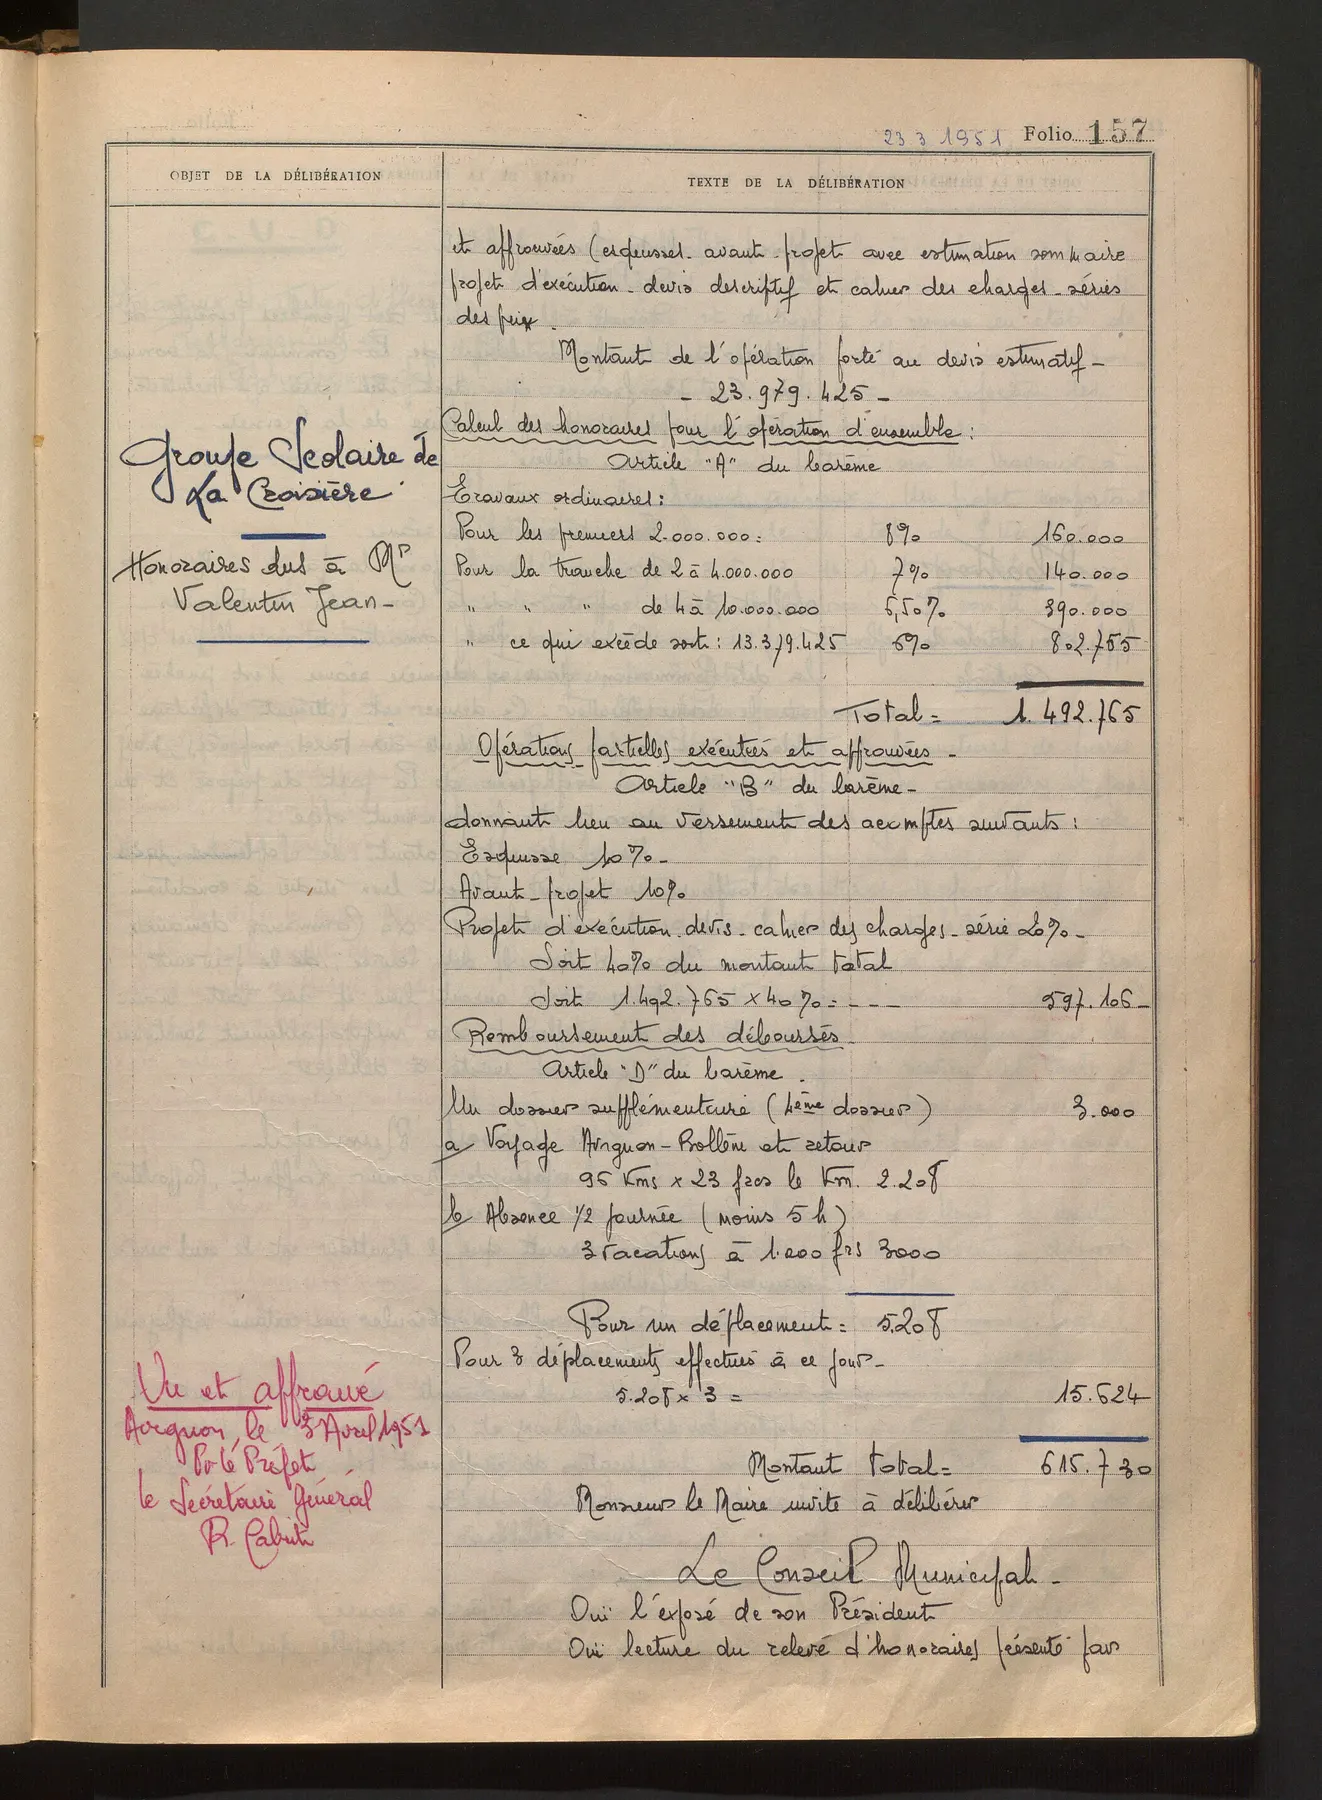 23 3 1951 Folio 157
OBJET DE LA DÉLIBÉRATION
TEXTE DE LA DÉLIBÉRATION
et approuvées (esquisses - avant-projet avec estimation sommaire
projet d'exécution - devis descriptif et cahier des charges - séries
des prix.
Montant de l'opération porté au devis estimatif -
- 23.979.425 -
Groupe Scolaire de
La Croisière
Honoraires dus à Mr
Valentin Jean -
Calcul des honoraires pour l'opération d'ensemble :
Article "A" du barème
Travaux ordinaires :
Pour les premiers 2.000.000 : 8% 160.000
Pour la tranche de 2 à 4.000.000 7% 140.000
" " " de 4 à 10.000.000 6,50% 390.000
" ce qui excède soit : 13.379.425 6% 802.765
Total = 1.492.765
Opérations partielles exécutées et approuvées -
Article "B" du barème -
donnant lieu au versement des acomptes suivants :
Esquisse 10% -
Avant-projet 10%
Projet d'exécution - devis - cahier des charges - série 20% -
Soit 40% du montant total
Soit 1.492.765 x 40% = - - - 597.106 -
Remboursement des déboursés
Article "D" du barème.
Un dossier supplémentaire (4ème dossier) 3.000
a Voyage Avignon - Bollène et retour
96 Kms x 23 frcs le Km. 2.208
b Absence 1/2 journée (moins 5 h)
3 vacations à 1.000 frs 3000
Pour un déplacement = 5.208
Pour 3 déplacements effectués à ce jour -
5.208 x 3 = 15.624
Montant total = 615.730
Monsieur le Maire invite à délibérer
Le Conseil Municipal -
Ouï l'exposé de son Président
Ouï lecture du relevé d'honoraires présenté par
Vu et approuvé
Avignon, le 3 Avril 1951
Pr le Préfet
le Secrétaire Général